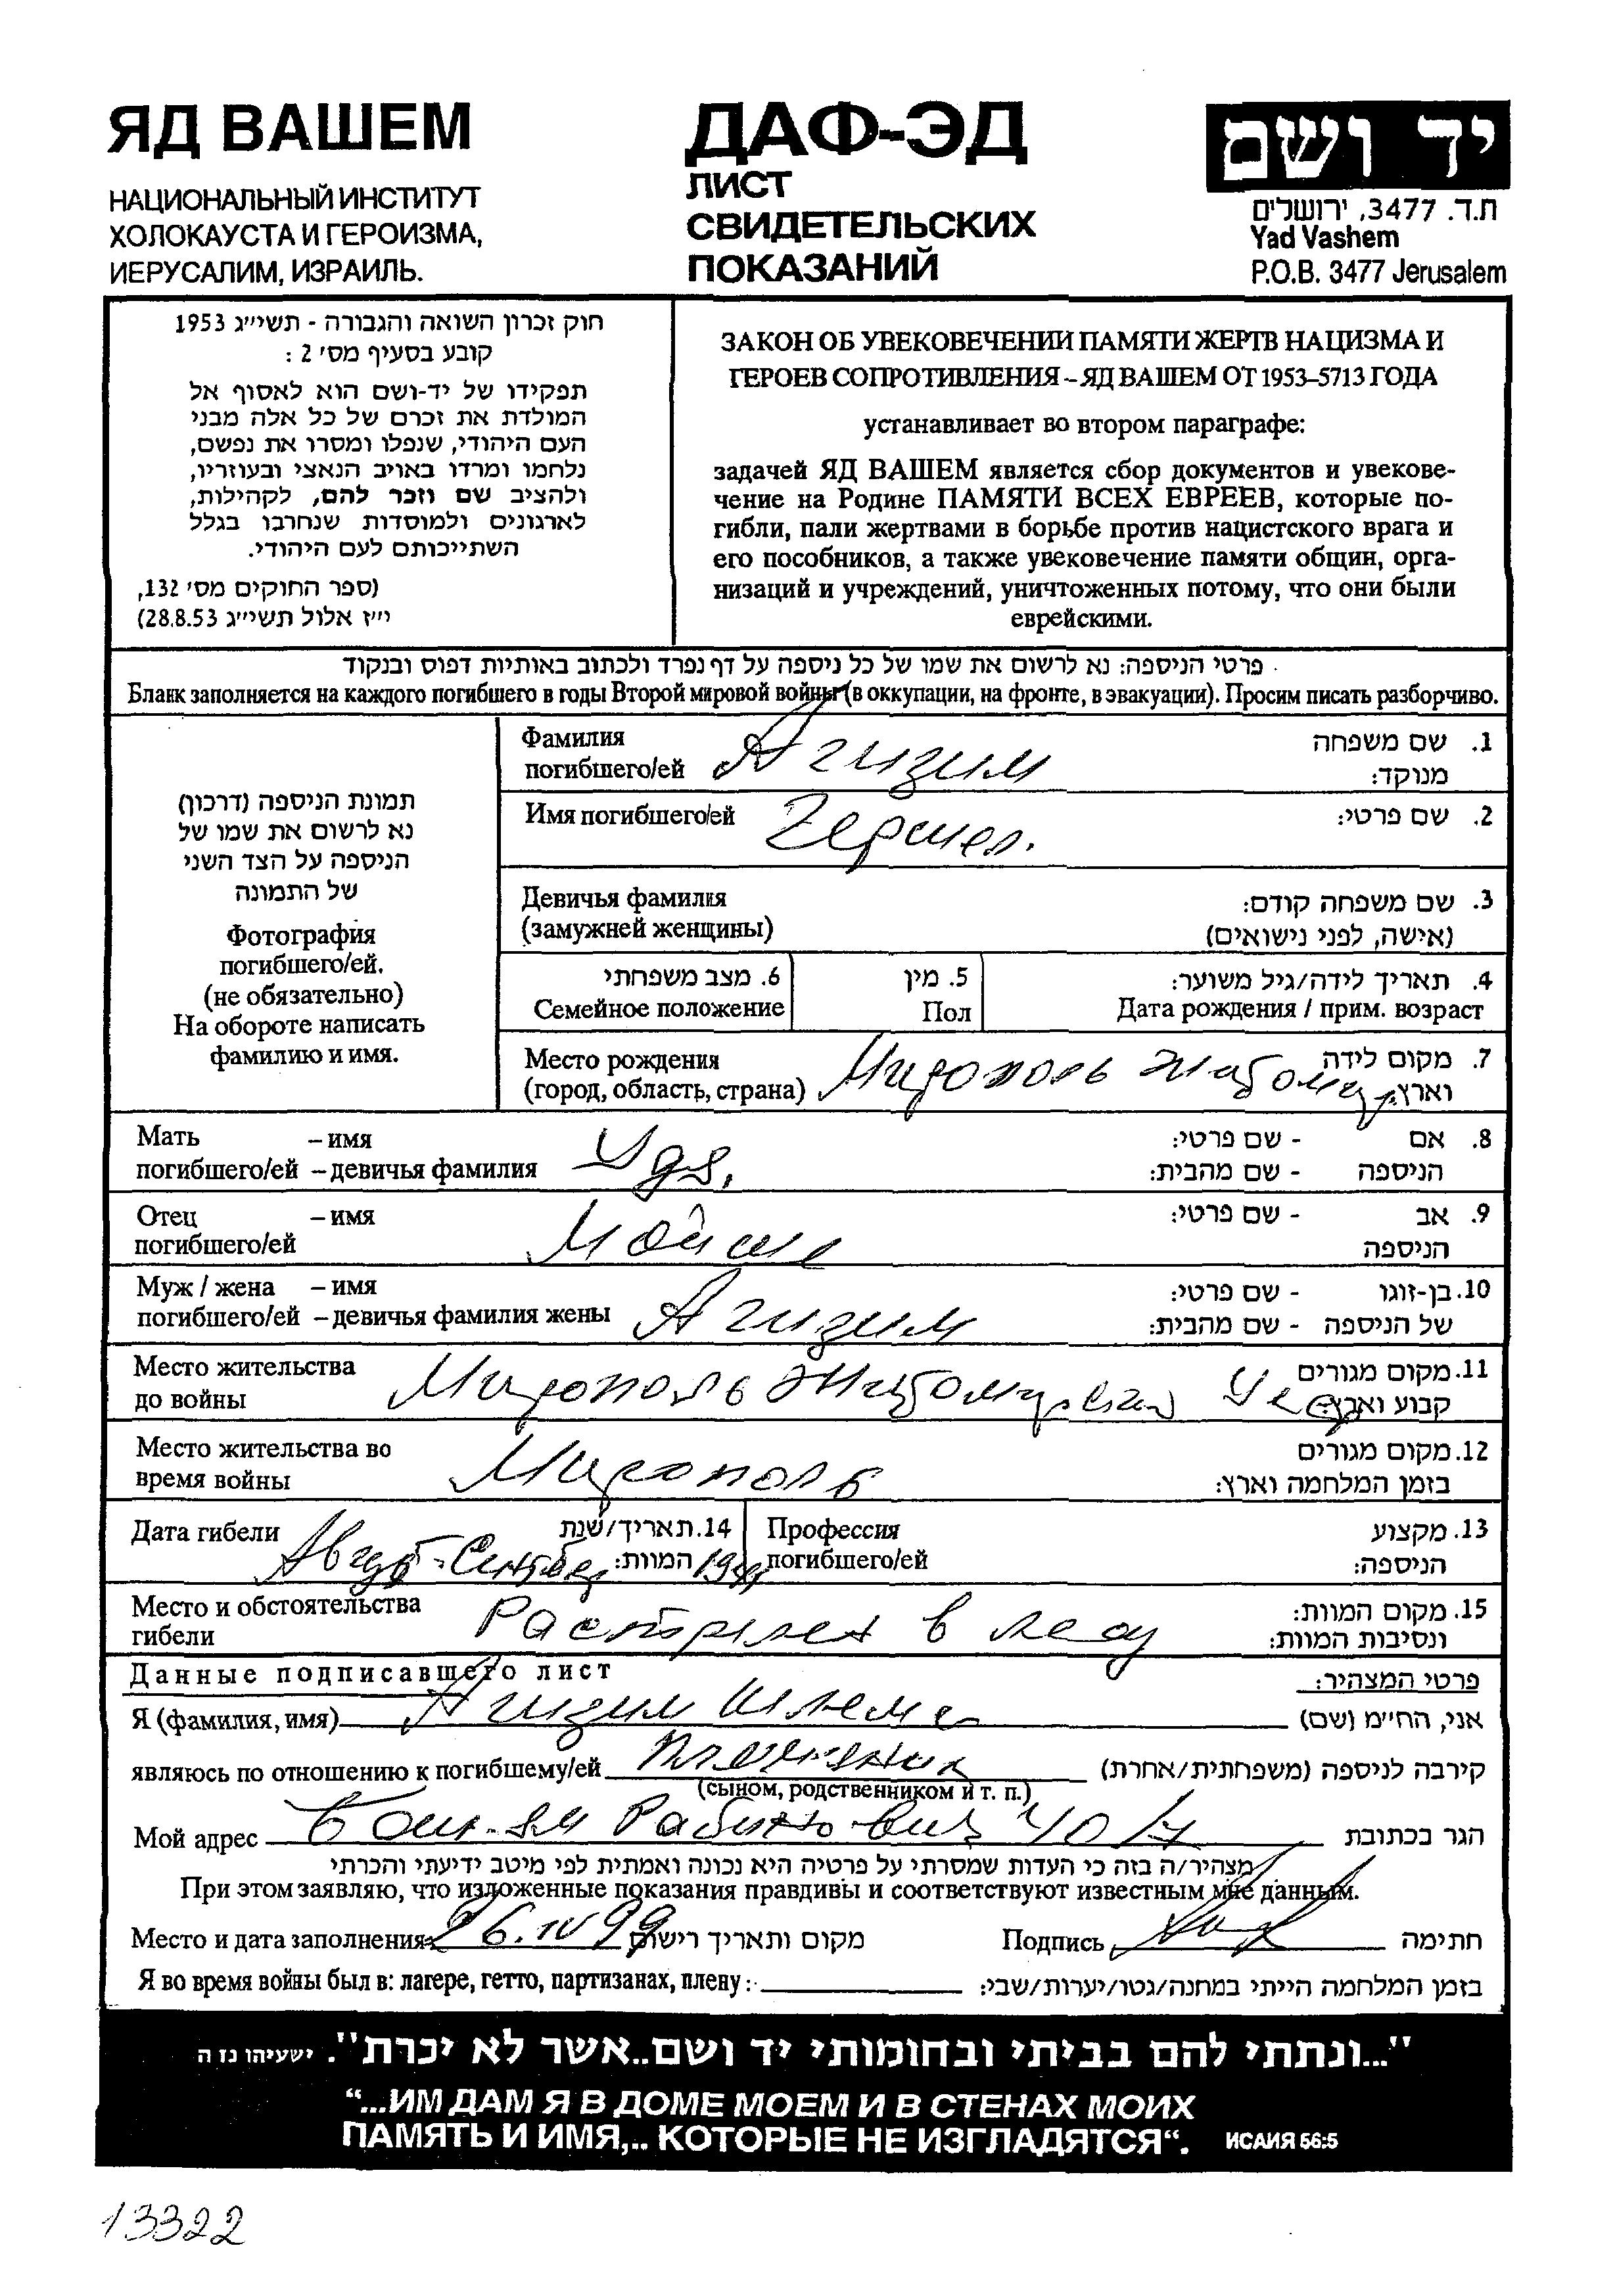 ЯД ВАШЕМ
НАЦИОНАЛЬНЫЙ ИНСТИТУТ
ХОЛОКАУСТА И ГЕРОИЗМА,
ИЕРУСАЛИМ, ИЗРАИЛЬ.
ДАФ-ЭД
ЛИСТ
СВИДЕТЕЛЬСКИХ
ПОКАЗАНИЙ
יד ושם
ת.ד. 3477, ירושלים
Yad Vashem
P.O.B. 3477 Jerusalem
חוק זכרון השואה והגבורה - תשי״ג 1953
קובע בסעיף מס׳ 2 :
תפקידו של יד-ושם הוא לאסוף אל
המולדת את זכרם של כל אלה מבני
העם היהודי, שנפלו ומסרו את נפשם,
נלחמו ומרדו באויב הנאצי ובעוזריו,
ולהציב שם וזכר להם, לקהילות,
לארגונים ולמוסדות שנחרבו בגלל
השתייכותם לעם היהודי.
(ספר החוקים מס׳ 132,
י״ז אלול תשי״ג 28.8.53)
ЗАКОН ОБ УВЕКОВЕЧЕНИИ ПАМЯТИ ЖЕРТВ НАЦИЗМА И
ГЕРОЕВ СОПРОТИВЛЕНИЯ – ЯД ВАШЕМ ОТ 1953–5713 ГОДА
устанавливает во втором параграфе:
задачей ЯД ВАШЕМ является сбор документов и увекове-
чение на Родине ПАМЯТИ ВСЕХ ЕВРЕЕВ, которые по-
гибли, пали жертвами в борьбе против нацистского врага и
его пособников, а также увековечение памяти общин, орга-
низаций и учреждений, уничтоженных потому, что они были
еврейскими.
פרטי הניספה: נא לרשום את שמו של כל ניספה על דף נפרד ולכתוב באותיות דפוס ובנקוד
Бланк заполняется на каждого погибшего в годы Второй мировой войны (в оккупации, на фронте, в эвакуации). Просим писать разборчиво.
תמונת הניספה (דרכון)
נא לרשום את שמו של
הניספה על הצד השני
של התמונה
Фотография
погибшего/ей.
(не обязательно)
На обороте написать
фамилию и имя.
Фамилия 1. שם משפחה
погибшего/ей Агизим מנוקד:
Имя погибшего/ей Гершел. 2. שם פרטי:
Девичья фамилия 3. שם משפחה קודם:
(замужней женщины) (אישה, לפני נישואים)
6. מצב משפחתי 5. מין 4. תאריך לידה/גיל משוער:
Семейное положение Пол Дата рождения / прим. возраст
Место рождения 7. מקום לידה
(город, область, страна) Мирополь Житомир. וארץ:
Мать – имя 8. אם - שם פרטי:
погибшего/ей – девичья фамилия הניספה - שם מהבית:
Отец – имя 9. אב - שם פרטי:
погибшего/ей Мойше הניספה
Муж / жена – имя 10. בן-זוגו - שם פרטי:
погибшего/ей – девичья фамилия жены Агизим של הניספה - שם מהבית:
Место жительства 11. מקום מגורים
до войны Мирополь Житомирская קבוע וארץ:
Место жительства во 12. מקום מגורים
время войны Мирополь בזמן המלחמה וארץ:
Дата гибели 14. תאריך/שנת Профессия 13. מקצוע
Август-Сентябрь המוות: 1941 погибшего/ей הניספה:
Место и обстоятельства 15. מקום המוות:
гибели Расстрелян в лесу ונסיבות המוות:
Данные подписавшего лист פרטי המצהיר:
Я (фамилия, имя) Агизим Шлема אני, החי״מ (שם)
являюсь по отношению к погибшему/ей племянник קירבה לניספה (משפחתית/אחרת)
(сыном, родственником и т. п.)
Мой адрес Бат-Ям Рабинович 40/7 הגר בכתובת
מצהיר/ה בזה כי העדות שמסרתי על פרטיה היא נכונה ואמתית לפי מיטב ידיעתי והכרתי
При этом заявляю, что изложенные показания правдивы и соответствуют известным мне данным.
Место и дата заполнения 26.IV 99 מקום ותאריך רישום Подпись חתימה
Я во время войны был в: лагере, гетто, партизанах, плену: בזמן המלחמה הייתי במחנה/גטו/יערות/שבי:
"...ונתתי להם בביתי ובחומותי יד ושם..אשר לא יכרת". ישעיהו נו ה
“...ИМ ДАМ Я В ДОМЕ МОЕМ И В СТЕНАХ МОИХ
ПАМЯТЬ И ИМЯ,.. КОТОРЫЕ НЕ ИЗГЛАДЯТСЯ“. ИСАИЯ 56:5
13322